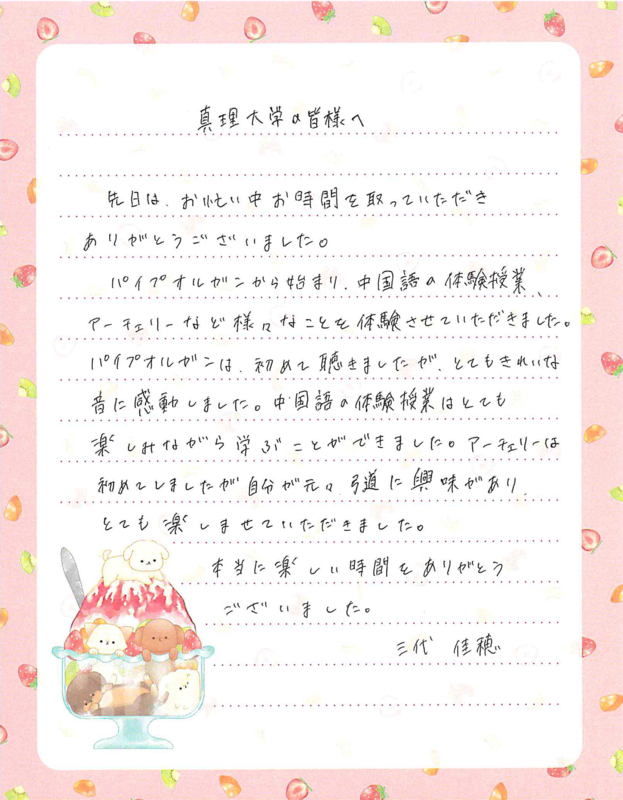 真理大学の皆様へ
先日は、お忙い中お時間を取っていただき
ありがとうございました。
パイプオルガンから始まり、中国語の体験授業、
アーチェリーなど様々なことを体験させていただきました。
パイプオルガンは、初めて聴きましたが、とてもきれいな
音に感動しました。中国語の体験授業はとても
楽しみながら学ぶことができました。アーチェリーは
初めてしましたが自分が元々、弓道に興味があり、
とても楽しませていただきました。
本当に楽しい時間をありがとう
ございました。
三代 佳穂